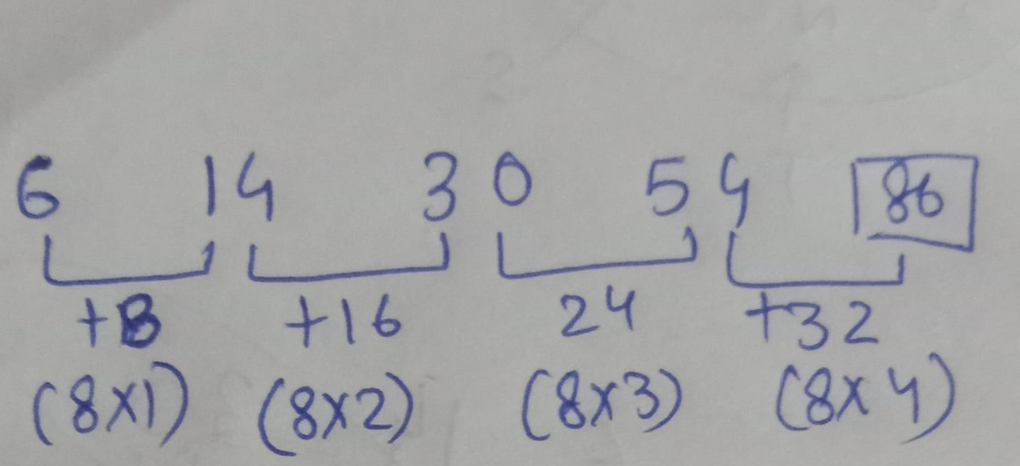 6 14 30 54 86
+8 +16 24 +32
(8x1) (8x2) (8x3) (8x4)